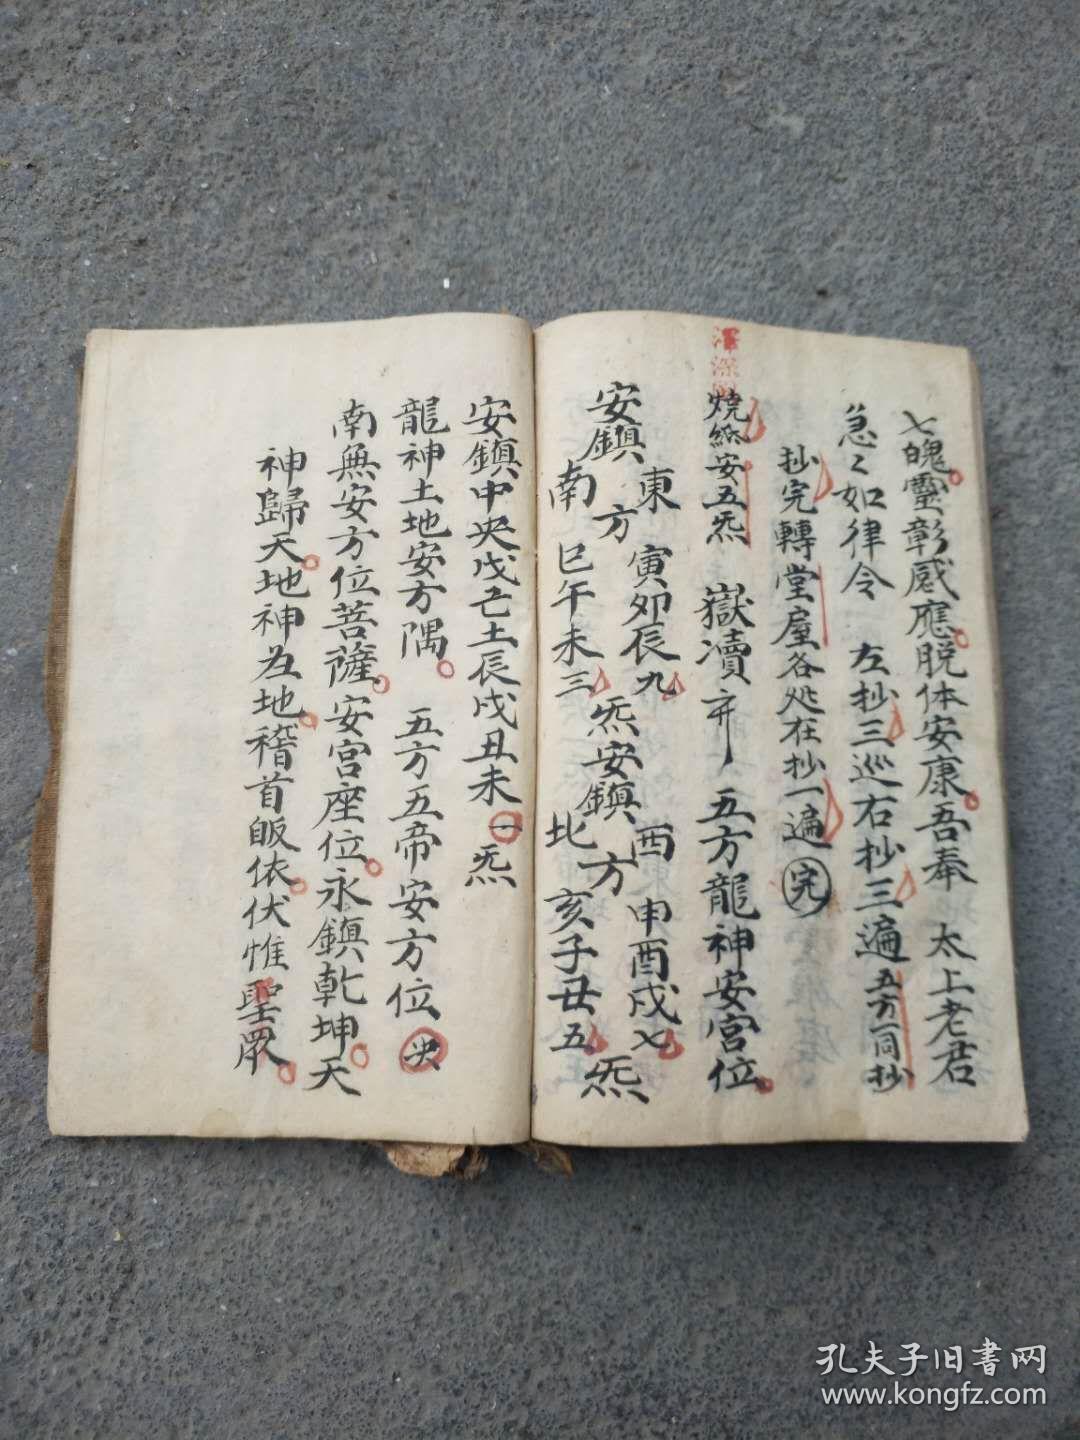 七魄靈彰感應脱体安康吾奉 太上老君
急〻如律令 左抄三巡右抄三遍五方一同抄
抄完轉堂屋各処在抄一遍完
燒紙安五炁 嶽瀆并 五方龍神安宮位
安鎮 東 方 寅卯辰九 炁安鎮 西 方 申酉戌七 炁
南 巳午未三 北 亥子丑五
安鎮中央戊己土辰戌丑未一炁
龍神土地安方隅 五方五帝安方位央
南無安方位菩薩安宮座位永鎮乾坤天
神歸天地神為地稽首皈依伏惟聖眾
孔夫子旧書网
www.kongfz.com